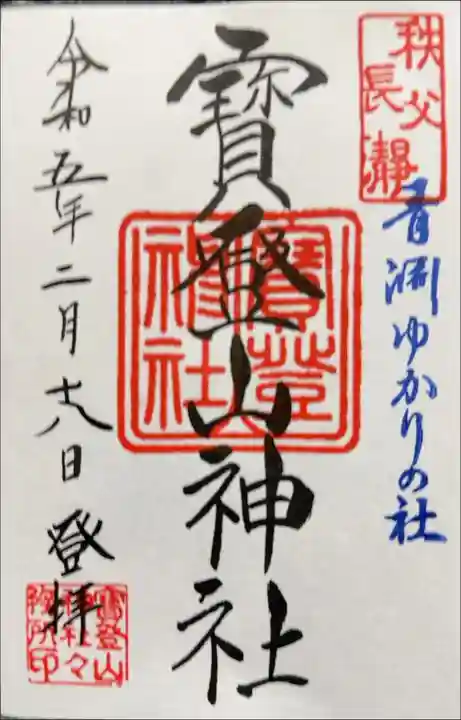 秩父
長瀞
青淵ゆかりの社
寳登山神社
寳登
神社
令和五年二月十八日 登拝
寳登山
神社々
務所印